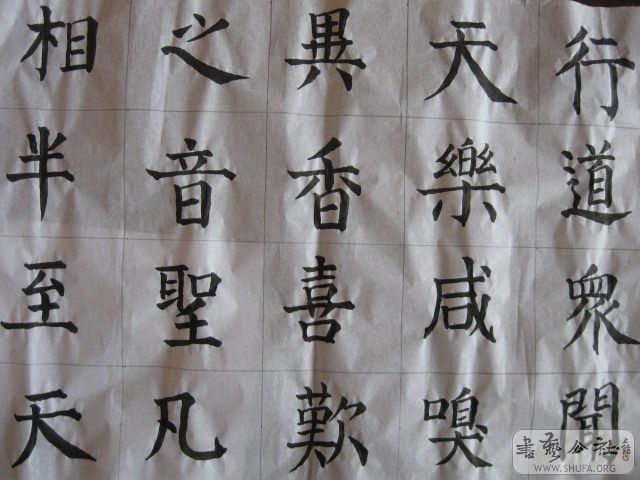 行道衆聞
天樂咸嗅
異香喜歎
之音聖凡
相半至天
書藝公社
WWW.SHUFA.ORG